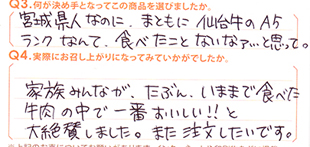 Q3.何が決め手となってこの商品を選びましたか。
宮城県人なのに、まともに仙台牛のA5
ランクなんて、食べたことないなァ…と思って。
Q4.実際にお召し上がりになってみていかがでしたか。
家族みんなが、たぶん、いままで食べた
牛肉の中で一番おいしい!!と
大絶賛しました。また注文したいです。